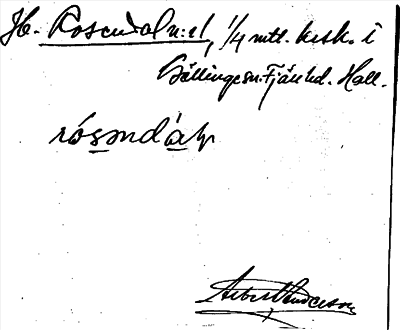 Hb. Rosendal n:r 1, 1/4 mtl. krsk. i
Gällinge sn. Fjäre hd. Hall.
rósəndáƚ
Albert Anderson